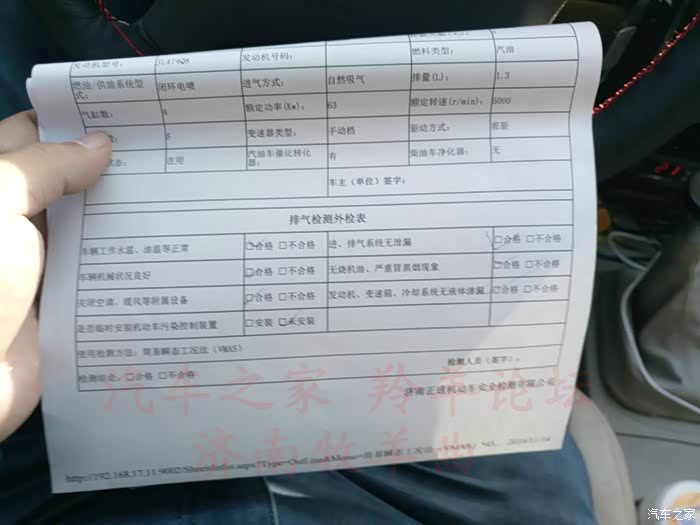 发动机型号： JL474QB 发动机号码： 燃料类型： 汽油
燃油/供油系统型式： 闭环电喷 进气方式： 自然吸气 排量(L)： 1.3
气缸数： 4 额定功率(Kw)： 63 额定转速(r/min)： 6000
5 变速器类型： 手动档 驱动方式： 前驱
状态： 在用 汽油车催化转化器： 有 柴油车净化器： 无
车主（单位）签字：
排气检测外检表
车辆工作水温、油温等正常 □合格 □不合格 进、排气系统无泄漏 □合格 □不合格
车辆机械状况良好 □合格 □不合格 无烧机油、严重冒黑烟现象 □合格 □不合格
关闭空调、暖风等附属设备 □合格 □不合格 发动机、变速箱、冷却系统无液体渗漏 □合格 □不合格
是否临时安装机动车污染控制装置 □安装 □未安装
使用检测方法：简易瞬态工况法（VMAS）
检测结论：□合格 □不合格 检测人员（签字）：
济南正通机动车安全检测有限公司
汽车之家 羚羊论坛
济南牧羊曲
http://192.168.17.11:9002/
简易瞬态工况法（VMAS）
汽车之家